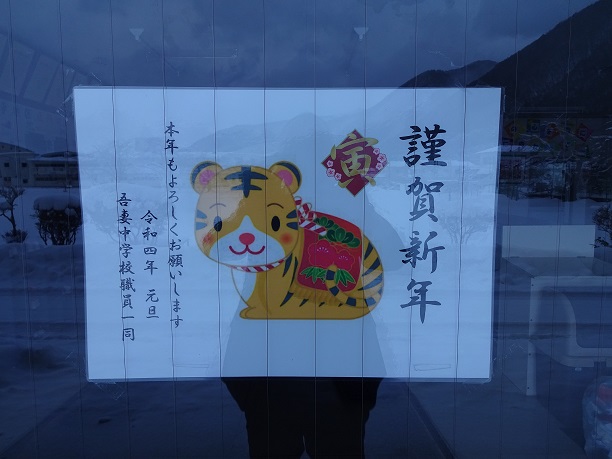 謹賀新年
寅
本年もよろしくお願いします
令和四年 元旦
吾妻中学校職員一同